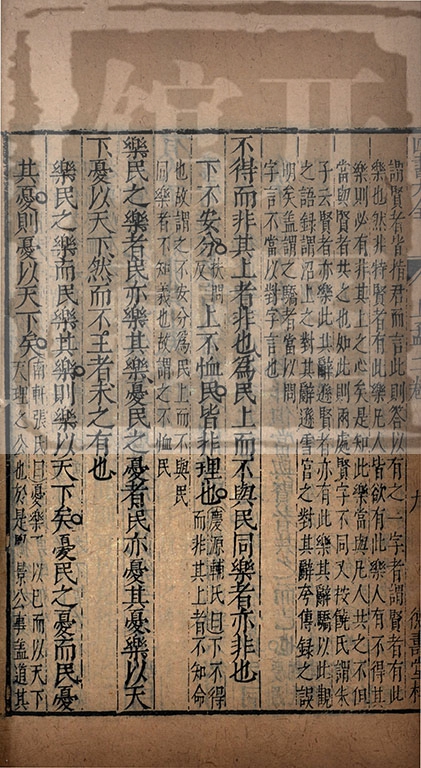 謂賢者皆指君而言此則答以有之一字者謂賢者有此
樂也然非特賢者有此樂凡人皆欲有此樂人有不得其
樂則必有非其上之心矣是知此樂當與凡人共之不但
當與賢者共之也如此則兩處賢字不同又按饒氏謂朱
子云賢者亦樂此其辭遜賢者亦有此樂其辭驕以此觀
之語録謂沼上之對其辭遜雪宮之對其辭夸傳録之誤
明矣盖謂之驕者當以問
字言不當以對字言也
不得而非其上者非也為民上而不與民同樂者亦非也
下不安分上不恤民皆非理也
慶源輔氏曰下不得
而非其上者不知命
也故謂之不安分為民上而不與民
同樂者不知義也故謂之不恤民
樂民之樂者民亦樂其樂憂民之憂者民亦憂其憂樂以天
下憂以天下然而不王者未之有也
樂民之樂而民樂其樂則樂以天下矣憂民之憂而民憂
其憂則憂以天下矣
南軒張氏曰憂樂不以已而以天下
天理之公也於是與景公事盖道其